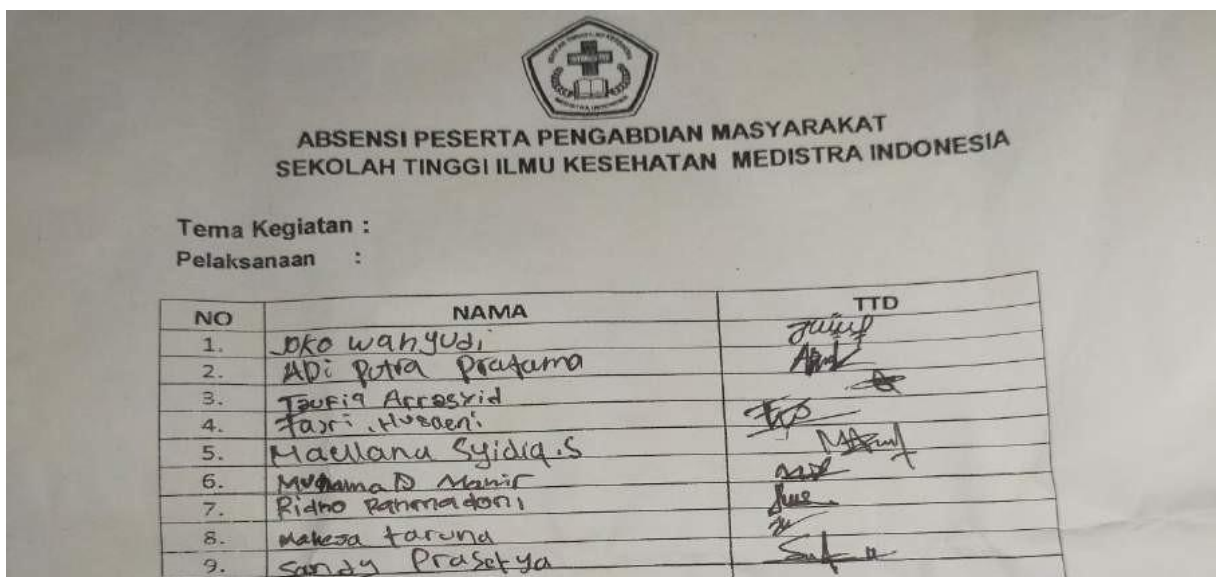 ABSENSI PESERTA PENGABDIAN MASYARAKAT
SEKOLAH TINGGI ILMU KESEHATAN MEDISTRA INDONESIA
Tema Kegiatan :
Pelaksanaan :
NO NAMA TTD
1. Joko wahyudi
2. ADi Putra Pratama
3. Taufiq Arrasyid
4. Fajri . Husaeni
5. Maullana Syidiq .S
6. Muhamad Manir
7. Ridho Rahmadoni
8. Mahesa taruna
9. Sandy Prasetya